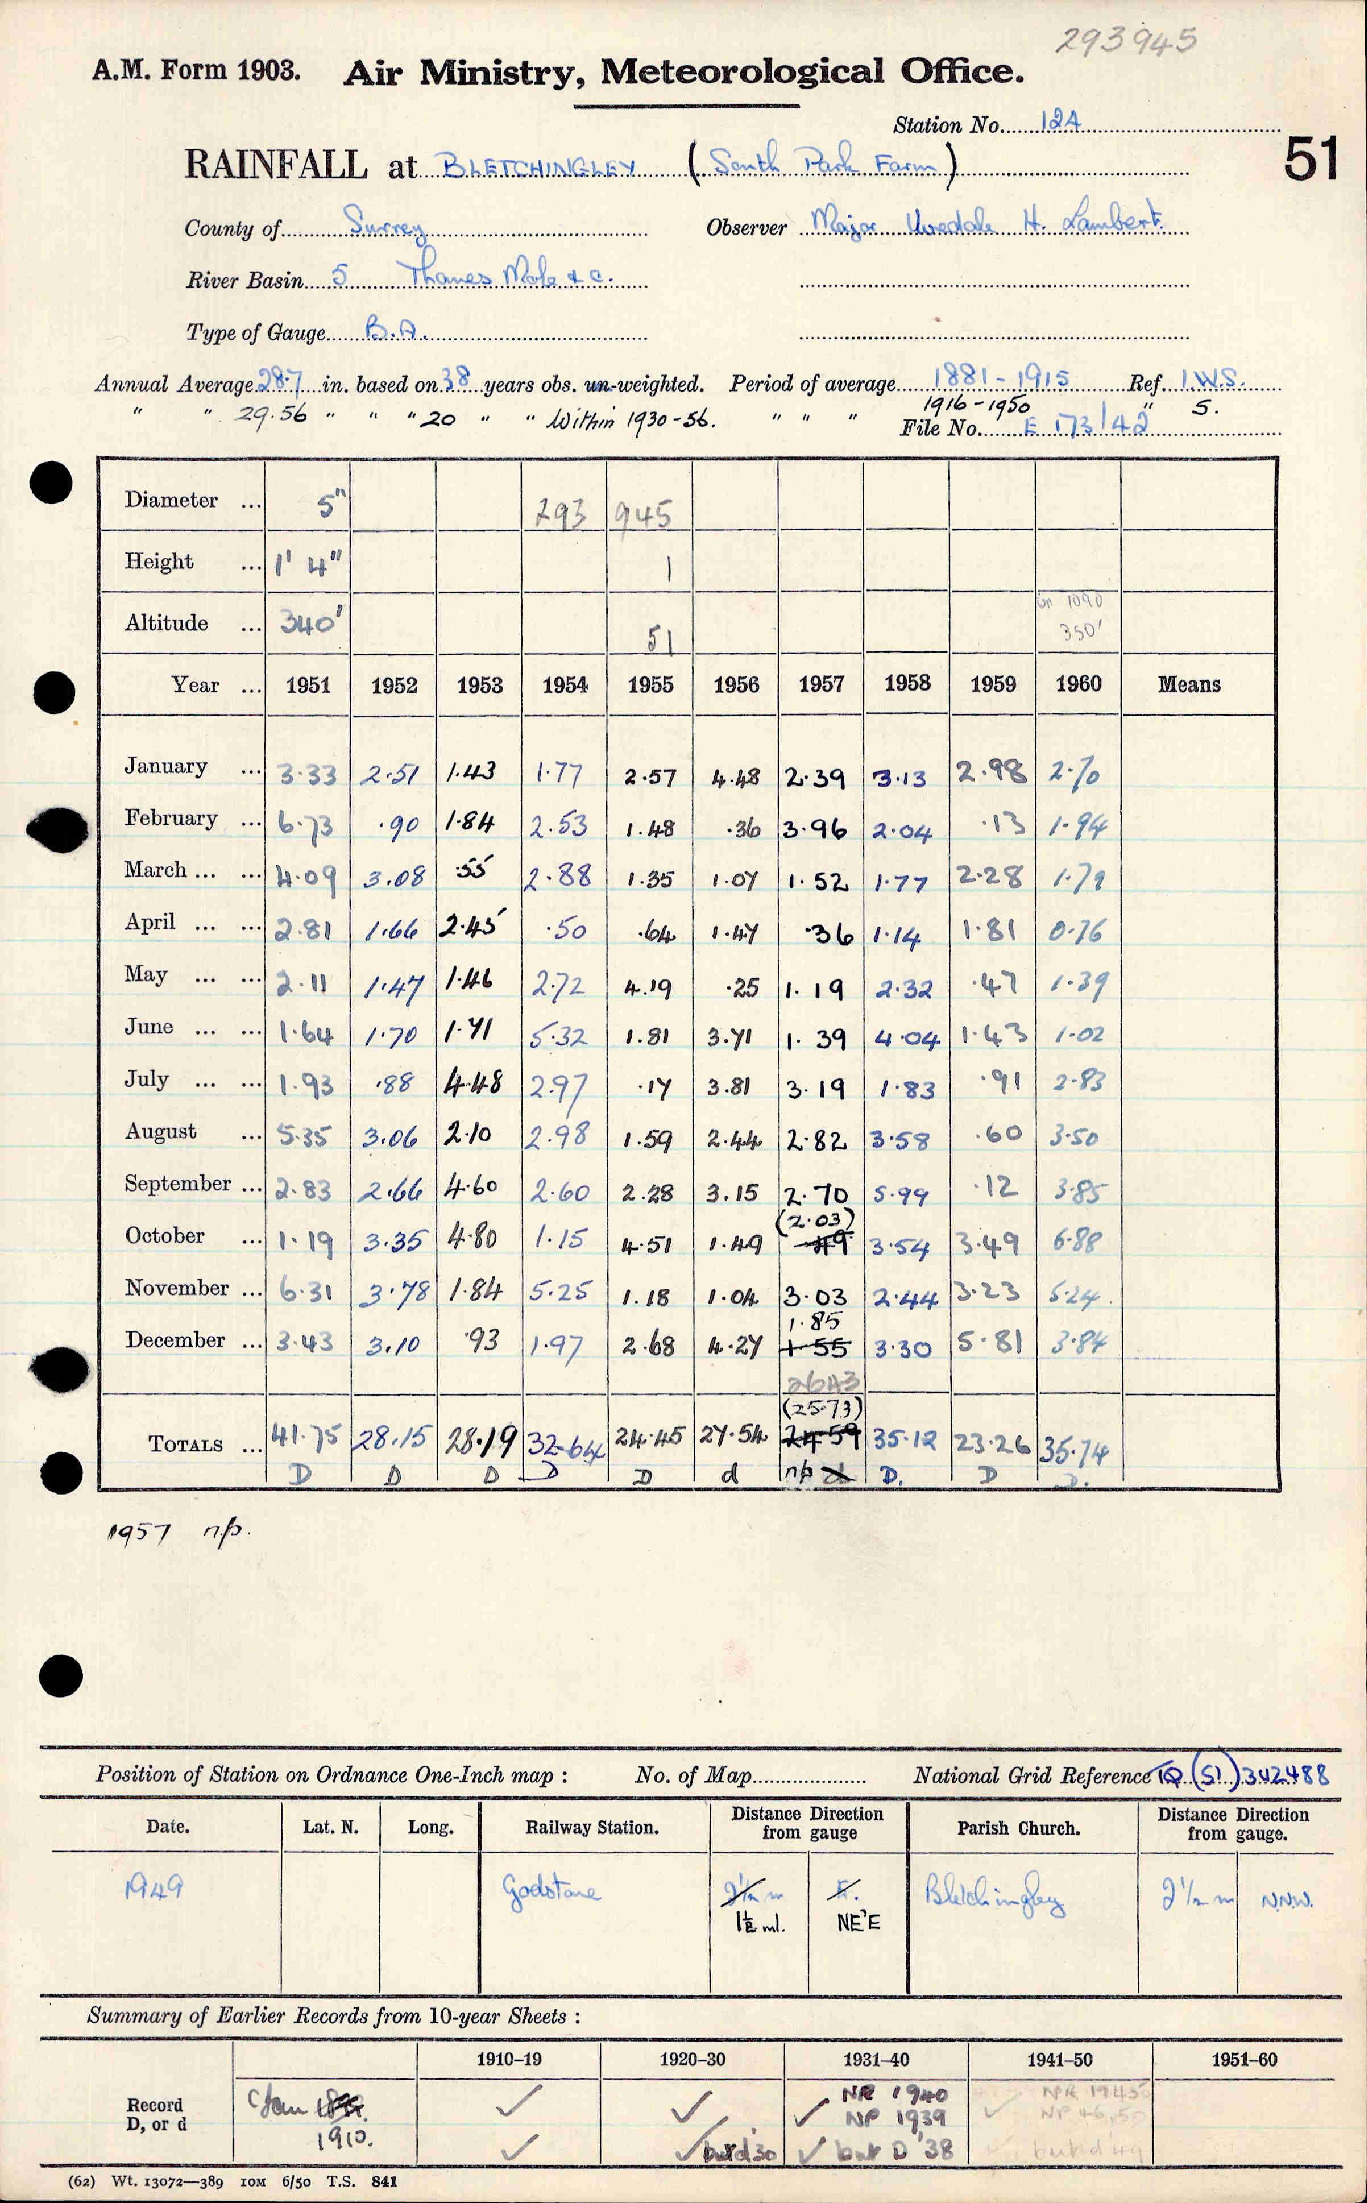 293945
A.M. Form 1903. Air Ministry, Meteorological Office.
Station No. 12A
51
RAINFALL at BLETCHINGLEY (South Park Farm)
County of Surrey Observer Major Uvedale H. Lambert.
River Basin 5 Thames Mole & c.
Type of Gauge B.A.
Annual Average 28.7 in. based on 38 years obs. un-weighted. Period of average 1881-1915 Ref. I.W.S.
" " 29.56 " " " 20 " " Within 1930-56. " " " 1916-1950 " S.
File No. E 173/42
Diameter ... 5" 293 945
Height ... 1' 4" 1
Altitude ... 340' 51 Gn 1090 350'
Year ... 1951 1952 1953 1954 1955 1956 1957 1958 1959 1960 Means
January ... 3.33 2.51 1.43 1.77 2.57 4.48 2.39 3.13 2.98 2.70
February ... 6.73 .90 1.84 2.53 1.48 .36 3.96 2.04 .13 1.94
March ... ... 4.09 3.08 .55 2.88 1.35 1.07 1.52 1.77 2.28 1.79
April ... ... 2.81 1.66 2.45 .50 .64 1.47 .36 1.14 1.81 0.76
May ... ... 2.11 1.47 1.46 2.72 4.19 .25 1.19 2.32 .47 1.39
June ... ... 1.64 1.70 1.71 5.32 1.81 3.71 1.39 4.04 1.43 1.02
July ... ... 1.93 .88 4.48 2.97 .17 3.81 3.19 1.83 .91 2.83
August ... 5.35 3.06 2.10 2.98 1.59 2.44 2.82 3.58 .60 3.50
September ... 2.83 2.66 4.60 2.60 2.28 3.15 2.70 5.99 .12 3.85
(2.03)
October ... 1.19 3.35 4.80 1.15 4.51 1.49 .49 3.54 3.49 6.88
November ... 6.31 3.78 1.84 5.25 1.18 1.04 3.03 2.44 3.23 5.24
1.85
December ... 3.43 3.10 .93 1.97 2.68 4.27 1.55 3.30 5.81 3.84
2643
(25.73)
TOTALS ... 41.75 28.15 28.19 32.64 24.45 27.54 24.59 35.12 23.26 35.74
D D D D D d n/p d D. D D.
1957 n/p.
Position of Station on Ordnance One-Inch map : No. of Map National Grid Reference TQ (51) 342488
Date. Lat. N. Long. Railway Station. Distance Direction from gauge Parish Church. Distance Direction from gauge.
1949 Godstone 2½ m E. Bletchingley 2½ m N.N.W.
1½ ml. NE'E
Summary of Earlier Records from 10-year Sheets :
1910–19 1920–30 1931–40 1941–50 1951–60
Record D, or d
Jan 1910.
✓ ✓ ✓ NR 1940 NP 1939 ✓ NPR 1945 NP 46,50
✓ ✓ but d 30 ✓ but D '38 but d '49
(62) Wt. 13072—389 10M 6/50 T.S. 841